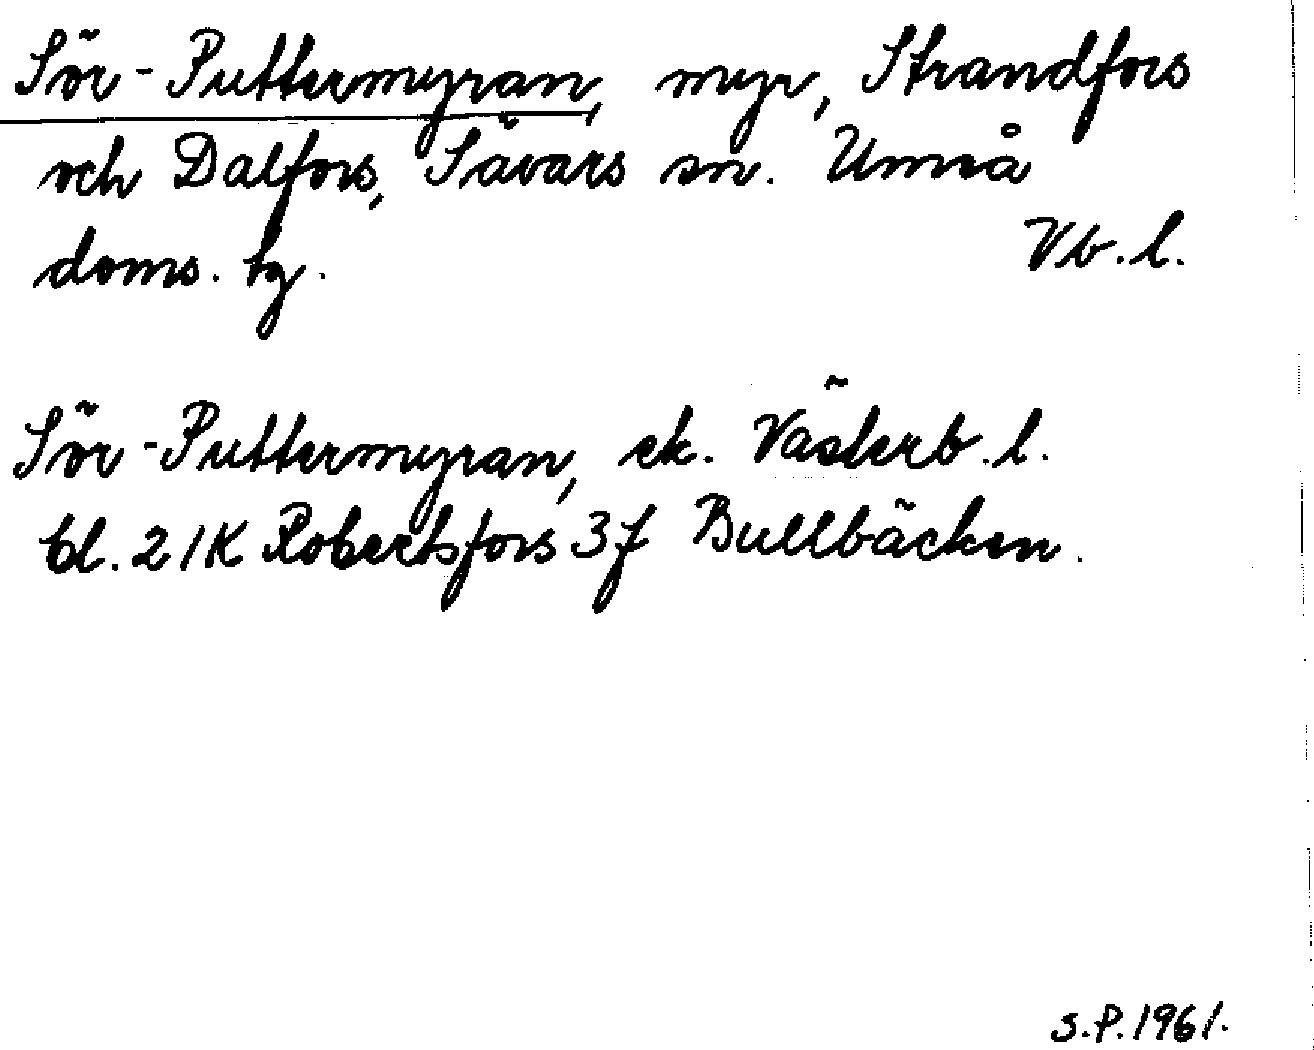 Sör-Puttermyran, myr, Strandfors
och Dalfors, Sävars sn. Umeå
doms. hg.
Vb. l.
Sör-Puttermyran, ek. Västerb. l.
bl. 21K Robertsfors 3f Bullbäcken.
S.P. 1961.